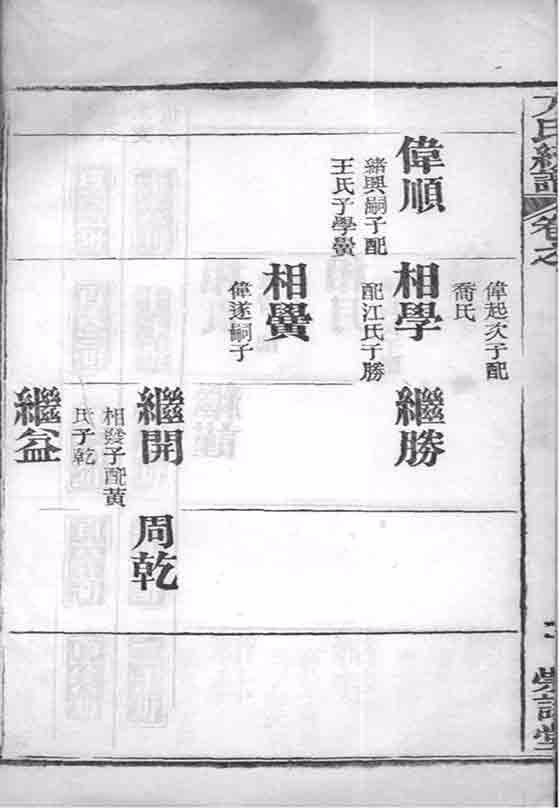 氏統譜
卷之
偉起次子配
喬氏
偉順
緒興嗣子配
王氏子學黌
相學
配江氏子勝
繼勝
相黌
偉遂嗣子
繼開
相發子配黃
氏子乾
周乾
繼益